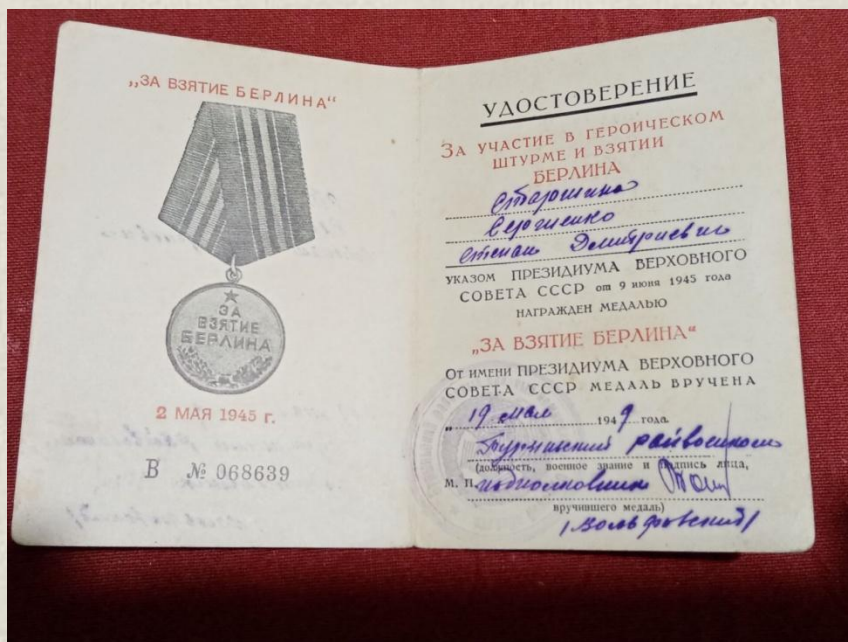 „ЗА ВЗЯТИЕ БЕРЛИНА“
ЗА
ВЗЯТИЕ
БЕРЛИНА
2 МАЯ 1945 г.
В № 068639
УДОСТОВЕРЕНИЕ
ЗА УЧАСТИЕ В ГЕРОИЧЕСКОМ
ШТУРМЕ И ВЗЯТИИ
БЕРЛИНА
Старшина
Сергиенко
Степан Дмитриевич
УКАЗОМ ПРЕЗИДИУМА ВЕРХОВНОГО
СОВЕТА СССР от 9 июня 1945 года
НАГРАЖДЕН МЕДАЛЬЮ
„ЗА ВЗЯТИЕ БЕРЛИНА“
ОТ ИМЕНИ ПРЕЗИДИУМА ВЕРХОВНОГО
СОВЕТА СССР МЕДАЛЬ ВРУЧЕНА
„19 мая 1949 года.
райвоенком
(должность, военное звание и подпись лица,
М. П. подполковник
вручившего медаль)